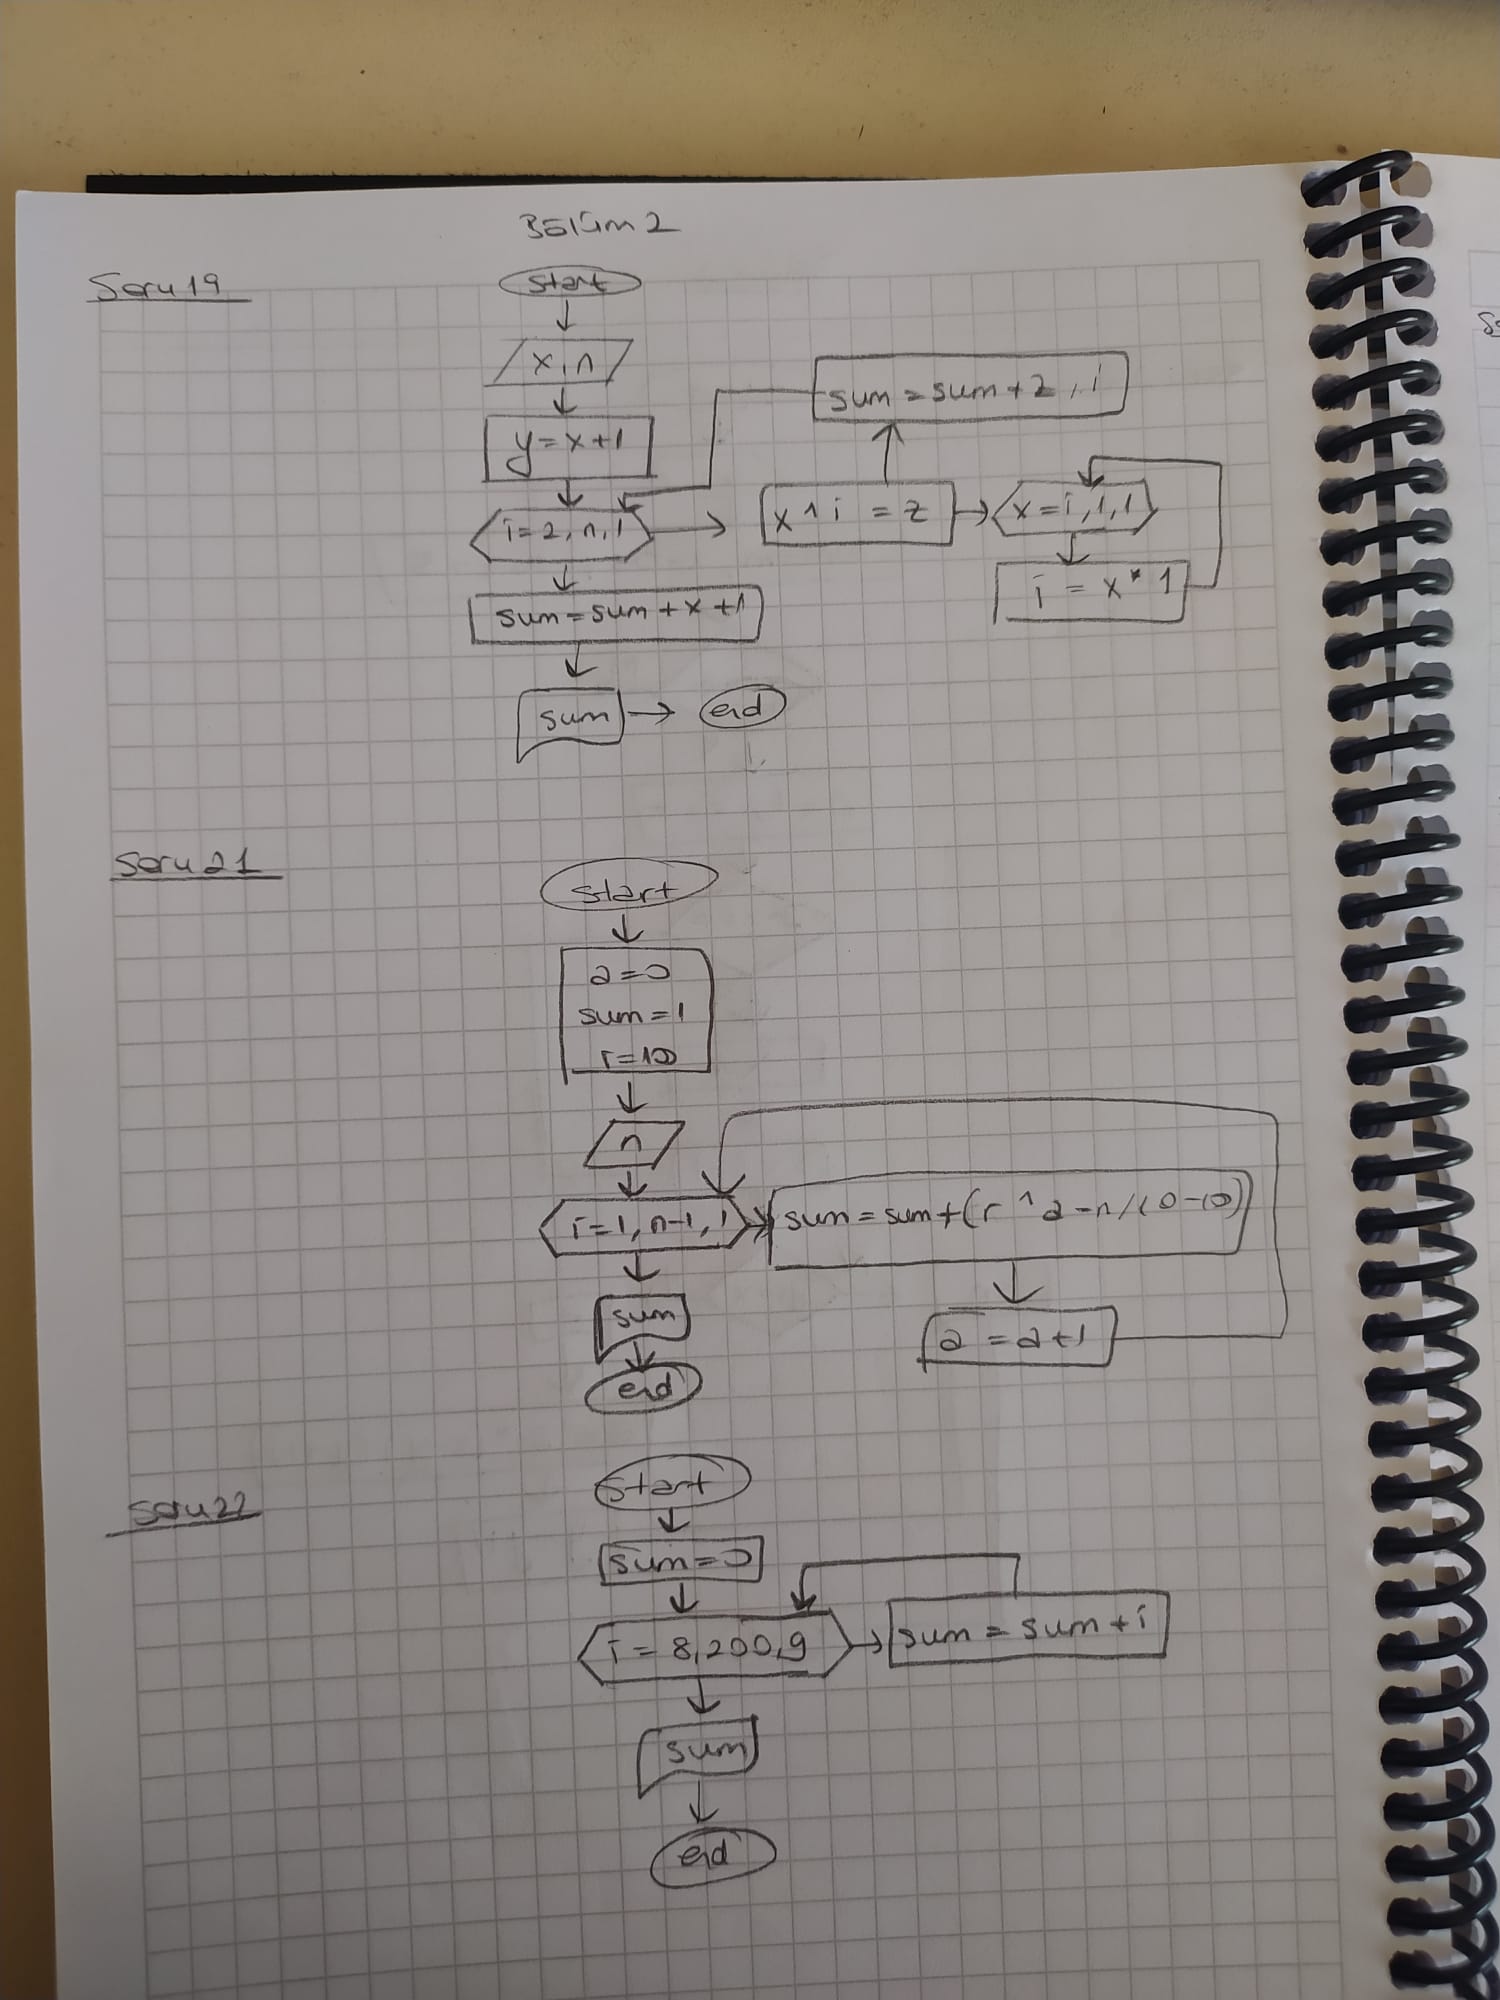 Bölüm 2
Soru 19
start
x, n
y = x + 1
i = 2, n, 1
x ^ i = z
sum = sum + z, i
x = i, 1, 1
i = x * 1
sum = sum + x + 1
sum
end
Soru 21
start
a = 0
sum = 1
r = 100
n
i = 1, n-1, 1
sum = sum + (r ^ a - n / 10 - 10)
a = a + 1
sum
end
Soru 22
start
sum = 0
i = 8, 200, 9
sum = sum + i
sum
end